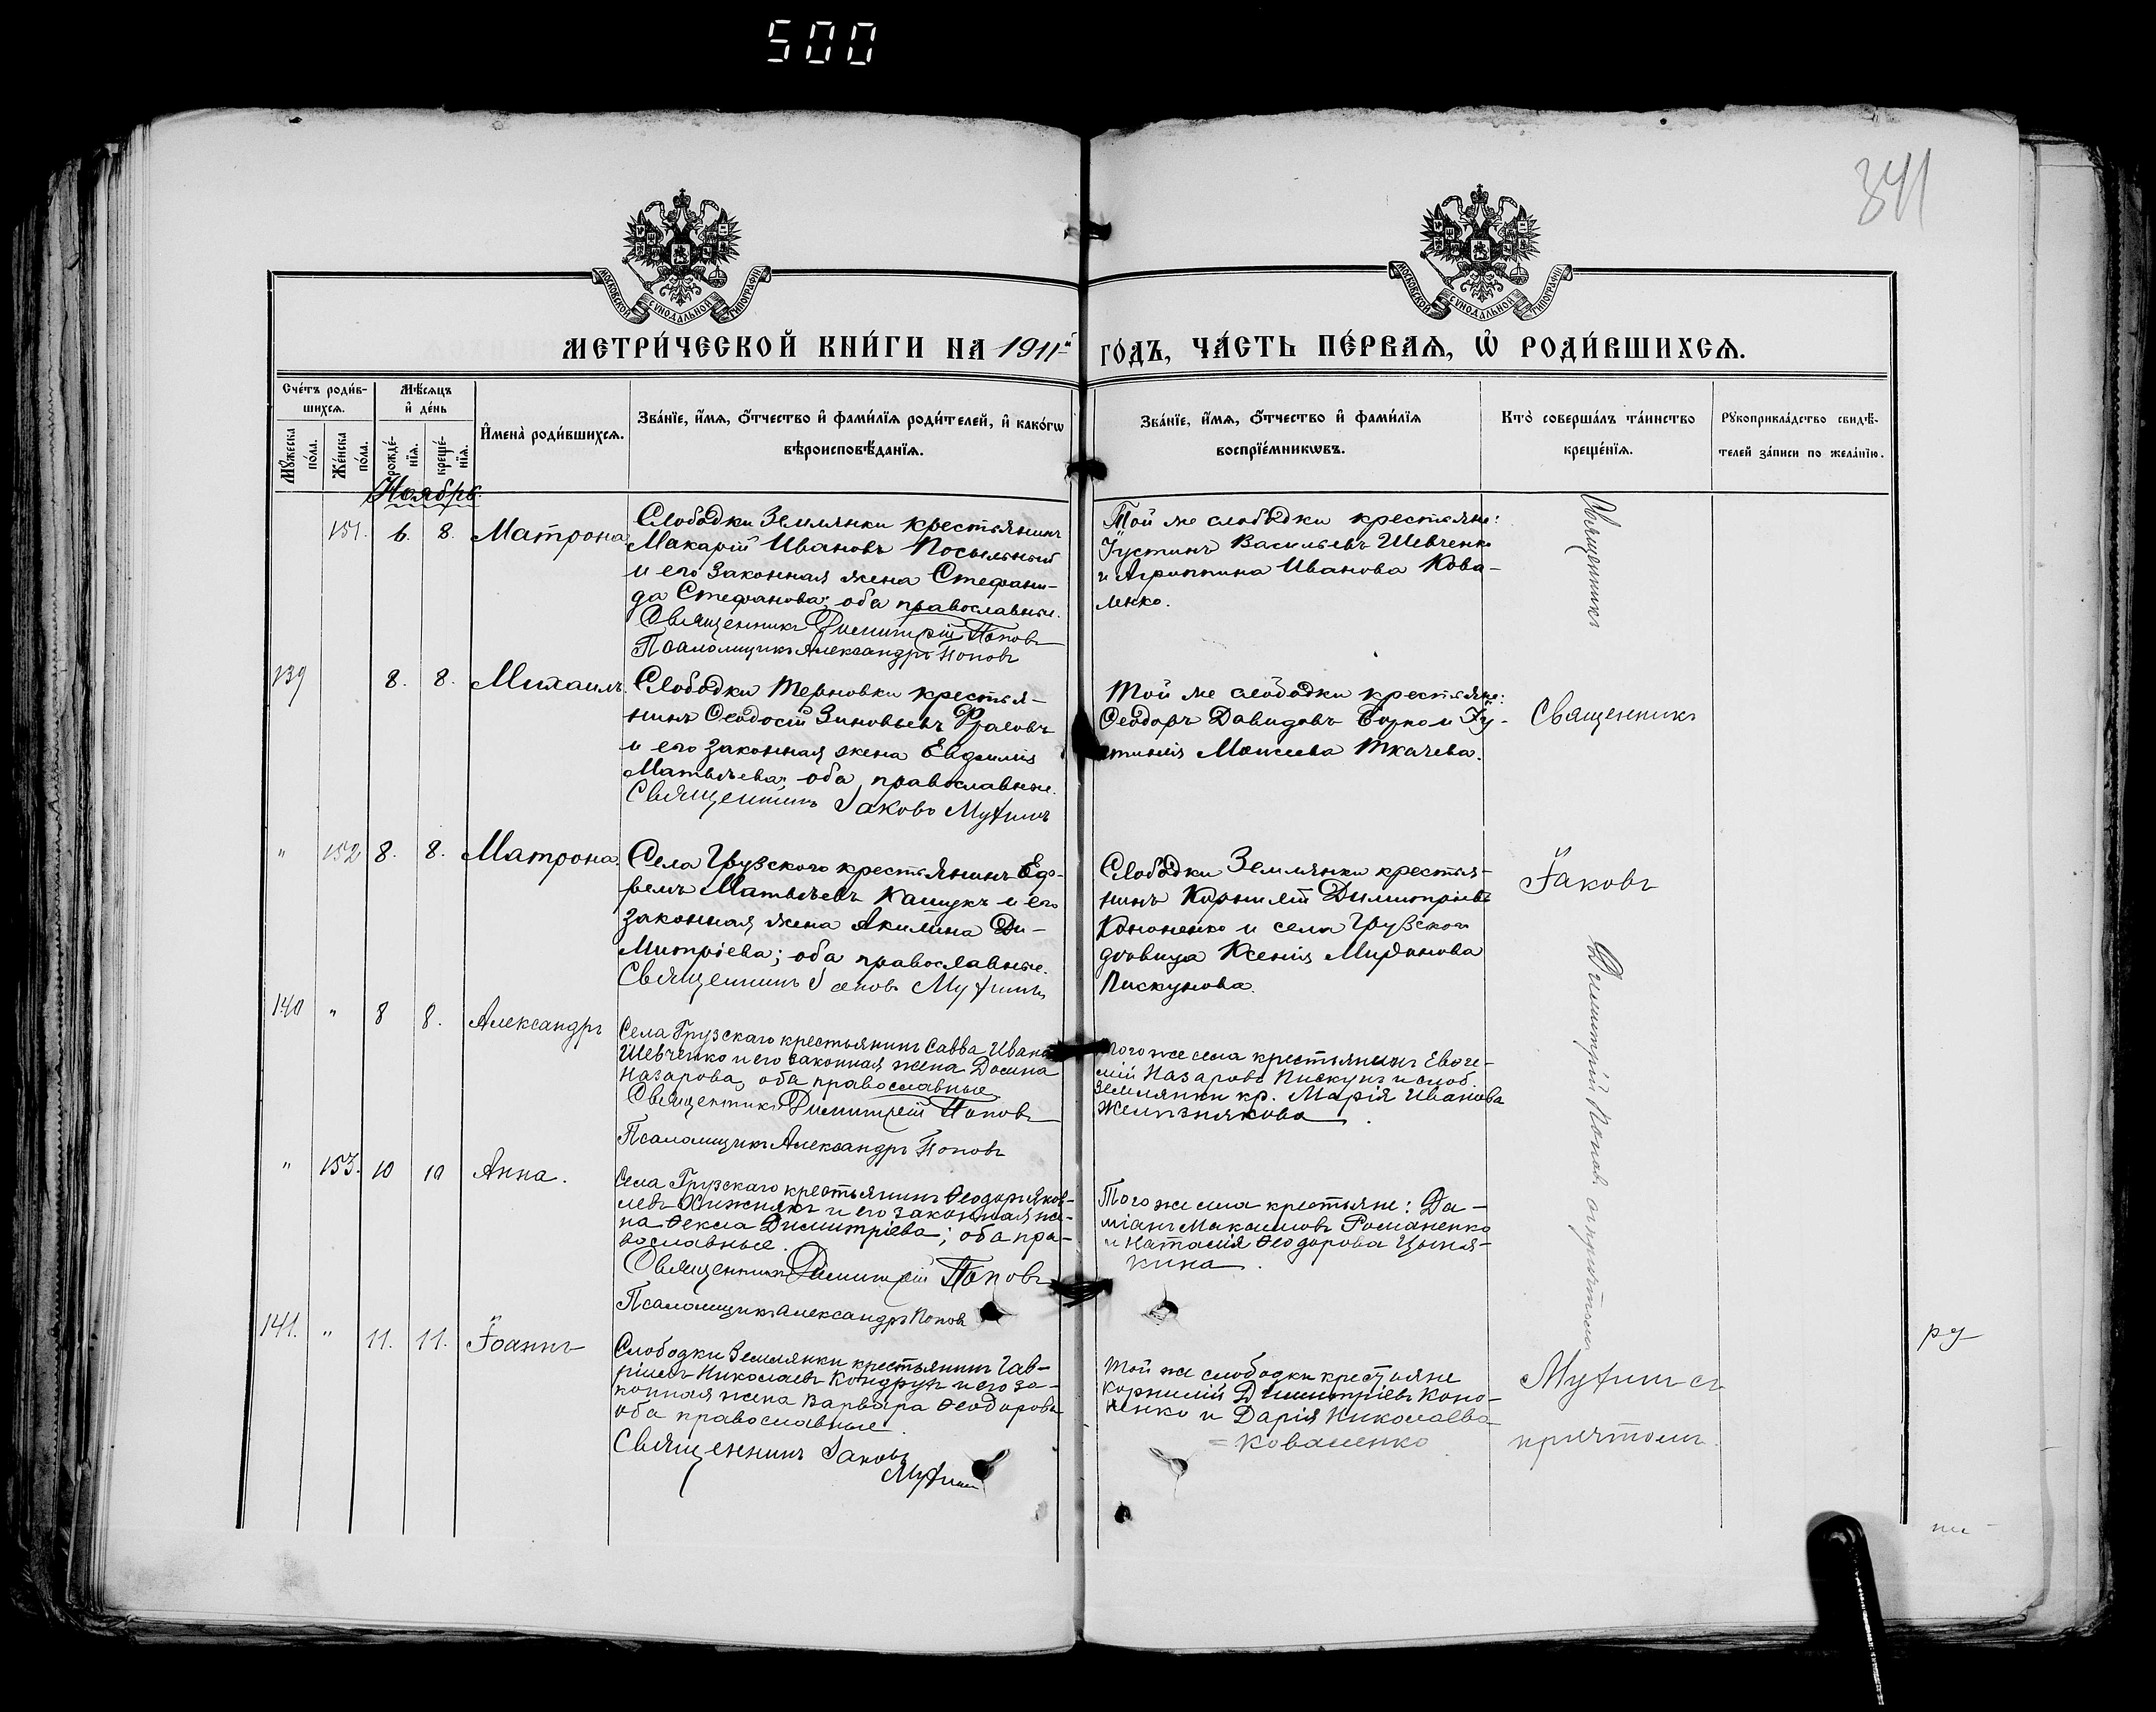 500
341
МОСКОВСКОЙ СѴНОДАЛЬНОЙ ТИПОГРАФІИ
МОСКОВСКОЙ СѴНОДАЛЬНОЙ ТИПОГРАФІИ
МЕТРИ́ЧЕСКОЙ КНИ́ГИ НА 1911й ГО́ДЪ, ЧА́СТЬ ПЕ́РВАѦ, Ѽ РОДИ́ВШИХСѦ.
Сче́тъ роди́в-
шихсѧ.
Мꙋ́жеска
по́ла.
Же́нска
по́ла.
Мѣ́сѧцъ
и҆ де́нь
рожде́-
нїѧ.
креще́-
нїѧ.
И҆мена̀ роди́вшихсѧ.
Зва́нїе, и҆́мѧ, ѻ҆́тчество и҆ фами́лїѧ роди́телей, и҆ како́гѡ
вѣроисповѣ́данїѧ.
Зва́нїе, и҆́мѧ, ѻ҆́тчество и҆ фами́лїѧ
воспрїе́мникѡвъ.
Кто̀ соверша́лъ та́инство
креще́нїѧ.
Рꙋкоприкла́дство свидѣ́-
телей за́писи по жела́нїю.
Ноябрь.
151. 6. 8. Матрона
Слободки Землянки крестьянинъ
Макарій Ивановъ Посыльный
и его законная жена Стефани-
да Стефанова; оба православные.
Священникъ Димитрій Поповъ
Псаломщикъ Александръ Поповъ
Той же слободки крестьяне:
Іустинъ Васильевъ Шевченко
и Агриппина Иванова Кова-
ленко.
Священникъ
139 8. 8. Михаилъ.
Слободки Терновки крестья-
нинъ Ѳеодосій Зиновьевъ
и его законная жена Евфимія
Матвѣева; оба православные.
Священникъ Іаковъ Мухинъ
Той же слободки крестьяне:
Ѳеодоръ Давидовъ и Іу-
стинія Моисеева Ткачева.
Священникъ
" 152 8. 8. Матрона.
Села Грузского крестьянинъ Еф-
ремъ Матвѣевъ Кащукъ и его
законная жена Акилина Ди-
митріева; оба православные.
Священникъ Іаковъ Мухинъ
Слободки Землянки крестья-
нинъ Корнилій Димитріевъ
Кононенко и села Грузского
дѣвица Ксенія
Пискунова.
Іаковъ
140 " 8 8. Александръ
Села Грузскаго крестьянинъ Савва Ивановъ
Шевченко и его законная жена Домна
Назарова, оба православные
Священникъ Димитрій Поповъ
Псаломщикъ Александръ Поповъ
Того же села крестьянинъ Евге-
ній Назаровъ Пискунъ и слоб.
Землянки кр. Марія Иванова
Желѣзнякова.
Димитрій Поповъ съ причтомъ
" 153. 10 10 Анна.
Села Грузскаго крестьянинъ Ѳеодоръ Яков-
левъ Хижнякъ и его законная же-
на Ѳекла Димитріева; оба пра-
вославные.
Священникъ Димитрій Поповъ
Псаломщикъ Александръ Поповъ
Того же села крестьяне: Да-
міанъ Максимовъ Романенко
и Наталія Ѳеодорова
кина.
141. " 11. 11. Іоаннъ
Слободки Землянки крестьянинъ Гав-
ріилъ Николаевъ Кондрун и его за-
конная жена Варвара Ѳеодорова
оба православные.
Священникъ Іаковъ
Мухинъ
Той же слободки крестьяне
Корнилій Димитріевъ Коно-
ненко и Дарія Николаева
= Коваленко
Мухинъ съ
причтомъ.
ру